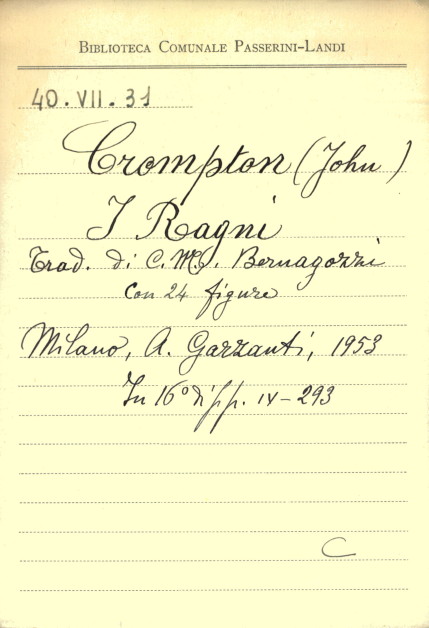 BIBLIOTECA COMUNALE PASSERINI-LANDI
40.VII.31
Crompton (John)
I Ragni
Trad. di C. M. Bernagozzi
con 24 figure
Milano, A. Garzanti, 1953
In 16° di pp. IX-293
C